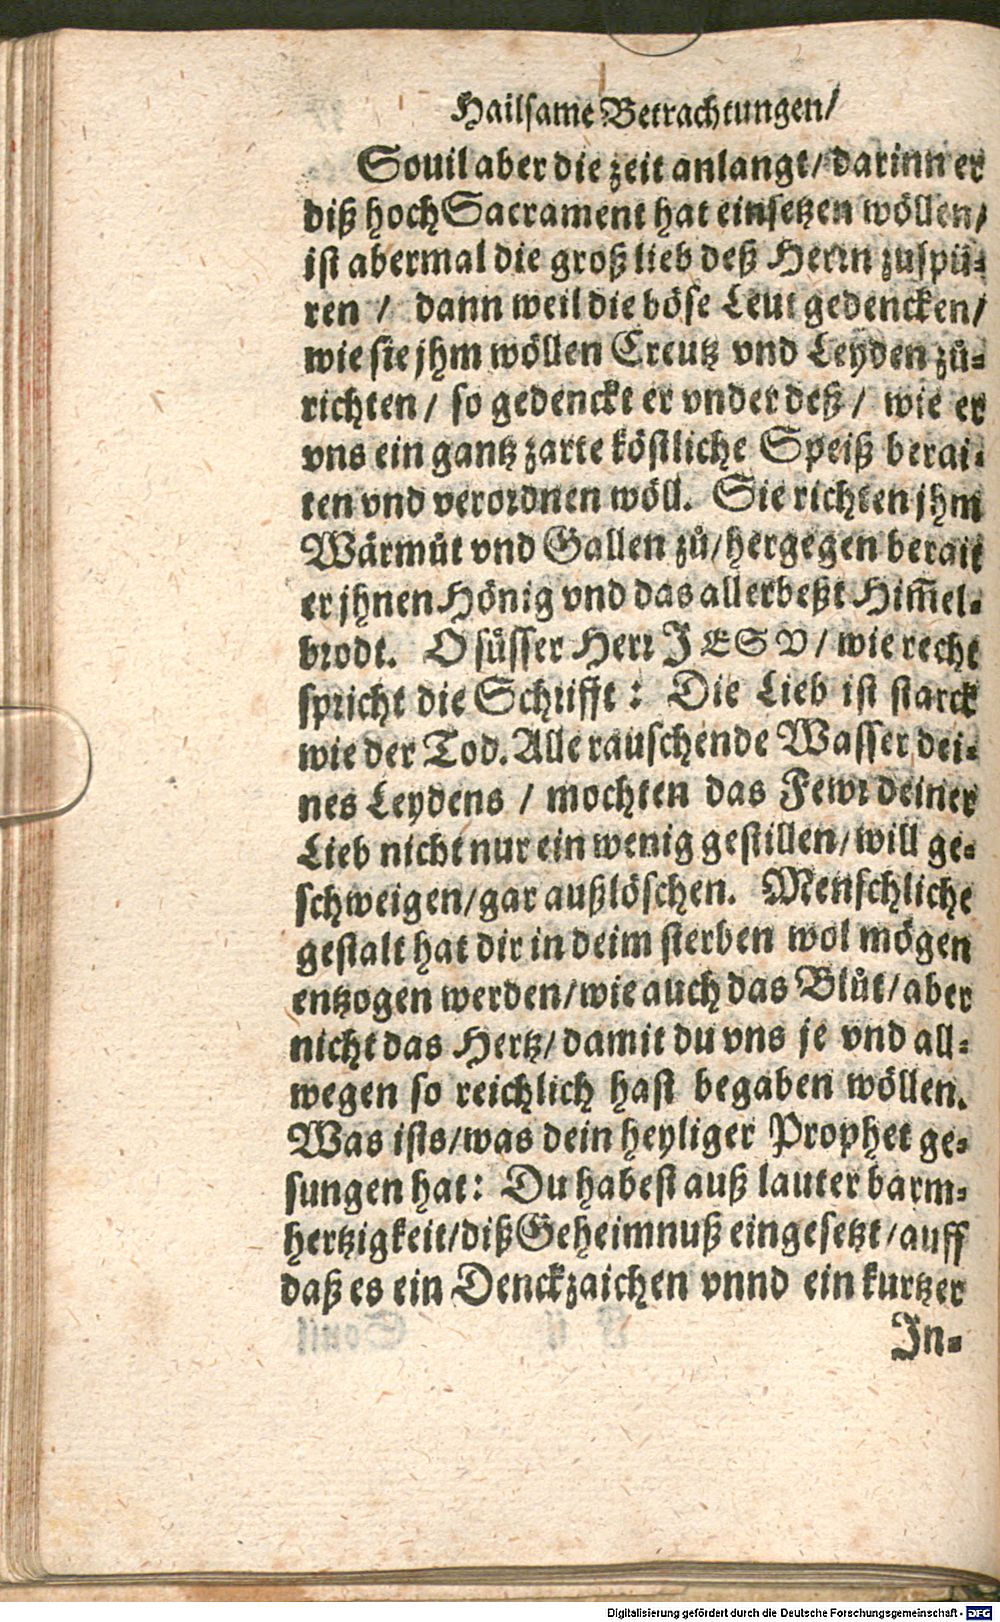 Hailsame Betrachtungen/
Souil aber die zeit anlangt/ darinn er
diß hoch Sacrament hat einsetzen wöllen/
ist abermal die groß lieb deß Herrn zuspü-
ren / dann weil die böse Leut gedencken/
wie sie jhm wöllen Creutz vnd Leyden zů-
richten / so gedenckt er vnder deß / wie er
vns ein gantz zarte köstliche Speiß berai-
ten vnd verordnen wöll. Sie richten jhm
Wärmůt vnd Gallen zů/ hergegen berait
er jhnen Hönig vnd das allerbeßt Him̃el-
brodt. O süsser Herr JESV / wie recht
spricht die Schrifft: Die Lieb ist starck
wie der Tod. Alle rauschende Wasser dei-
nes Leydens / mochten das Fewr deiner
Lieb nicht nur ein wenig gestillen/ will ge-
schweigen/ gar außlöschen. Menschliche
gestalt hat dir in deim sterben wol mögen
entzogen werden/ wie auch das Blůt/ aber
nicht das Hertz/ damit du vns je vnd all-
wegen so reichlich hast begaben wöllen.
Was ists/ was dein heyliger Prophet ge-
sungen hat: Du habest auß lauter barm-
hertzigkeit/ diß Geheimnuß eingesetzt/ auff
daß es ein Denckzaichen vnnd ein kurtzer
In-
Digitalisierung gefördert durch die Deutsche Forschungsgemeinschaft - DFG